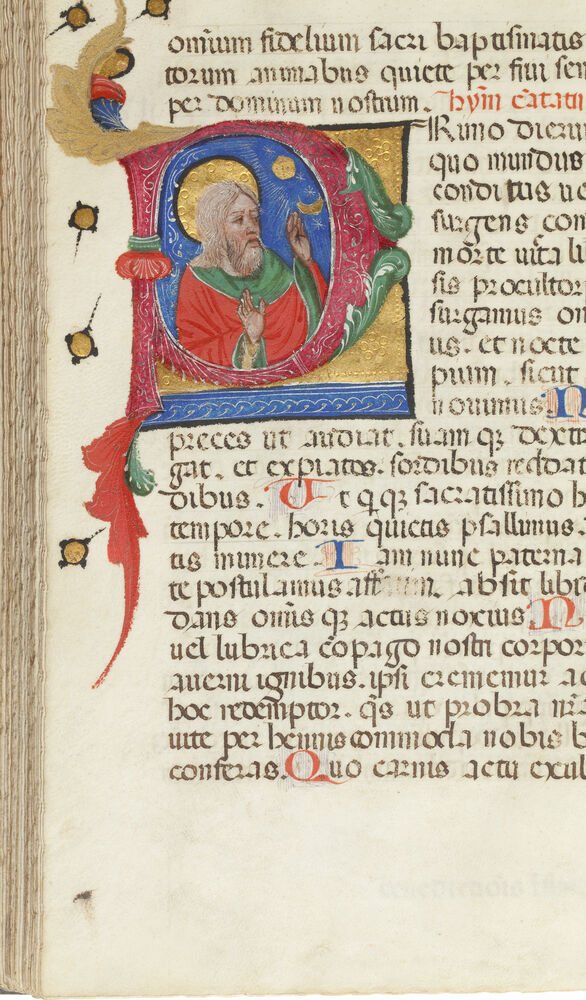 omnium fidelium sacri baptismatis
torum animabus quiete per frui sem
per dominum nostrum. hym̄ cātatu
Rimo dierum
quo mundus
conditus ue
surgens con
morte uita li
sis procultor
surgamus om
us. et nocte
pium. sicut
nouimus N
preces ut audiat. suam qȝ dexte
gat. et expiatos. sordibus reddat
dibus. Ut qqȝ sacratissimo h
tempore. horis quietis psallimus.
tis munere. Iam nunc paterna
te postulamus absit libi
dans om̄is qȝ actus noxius. N
uel lubrica cōpago nostri corpor
auerni ignibus. ipsi crememur ac
hoc redēptor. q̄s ut probra nr̄a
uite per hennis commoda nobis b
conferas. Quo carnis actu exul